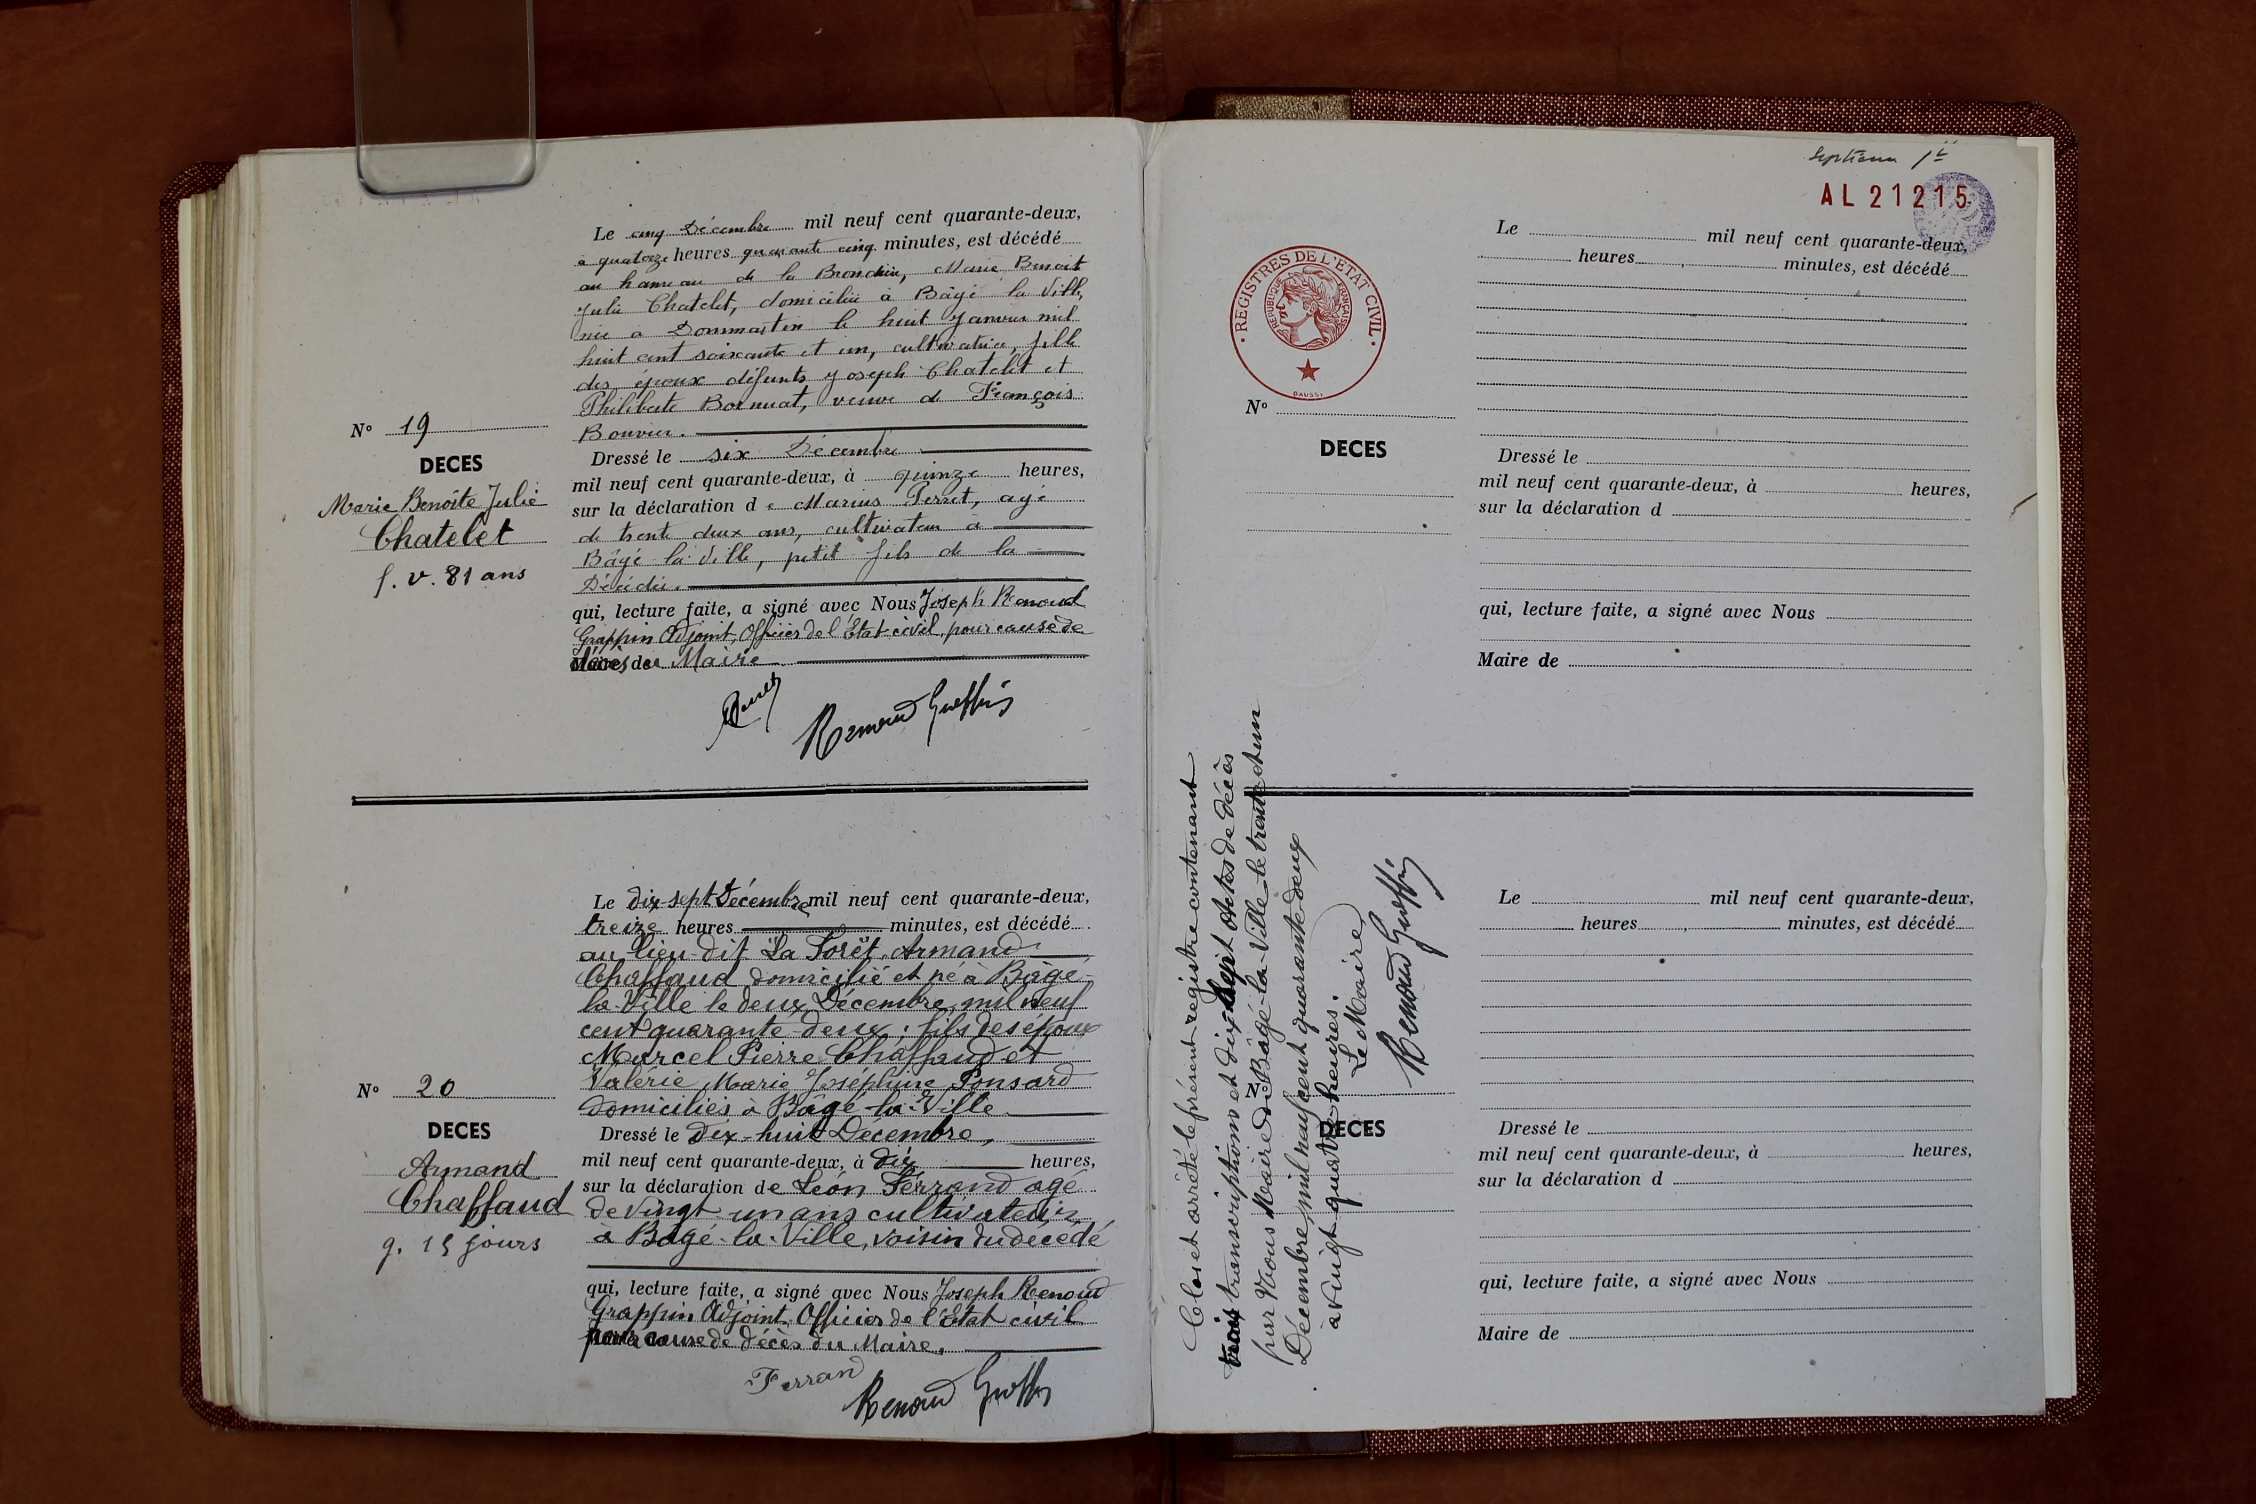 Le cinq Décembre mil neuf cent quarante-deux,
à quatorze heures quarante cinq minutes, est décédé
au hameau de la Bronchin, Marie Benoit
Julie Chatelet, domiciliée à Bâgé la Ville,
née à Dommartin le huit Janvier mil
huit cent soixante et un, cultivatrice, fille
des époux défunts Joseph Chatelet et
Philiberte Bornuat, veuve de François
Bouvier.
N° 19
DECES
Marie Benoîte Julie
Chatelet
f. v. 81 ans
Dressé le six Décembre
mil neuf cent quarante-deux, à quinze heures,
sur la déclaration de Marius Perret, agé
de trente deux ans, cultivateur à
Bâgé la Ville, petit fils de la
Décédée.
qui, lecture faite, a signé avec Nous Joseph Renoud
Grappin Adjoint, Officier de l'Etat-civil, pour cause de
décès du Maire
Renoud Grappin
Le dix-sept Décembre mil neuf cent quarante-deux,
treize heures minutes, est décédé
au lieu-dit La Forêt, Armand
Chaffaud domicilié et né à Bâgé-
la-Ville le deux Décembre mil neuf
cent quarante-deux; fils des époux
Marcel Pierre Chaffaud et
Valérie Marie Joséphine Ponsard
domiciliés à Bâgé-la-Ville
N° 20
DECES
Armand
Chaffaud
g. 15 jours
Dressé le dix-huit Décembre,
mil neuf cent quarante-deux, à dix heures,
sur la déclaration de Léon Ferrand agé
de vingt-un ans cultivateur
à Bâgé-la-Ville, voisin du décédé
qui, lecture faite, a signé avec Nous Joseph Renoud
Grappin Adjoint, Officier de l'Etat civil
pour cause de décès du Maire.
Ferrand
Renoud Grappin
AL 21215
REGISTRES DE L'ETAT CIVIL
REPUBLIQUE FRANÇAISE
DAUSSY
Le mil neuf cent quarante-deux,
heures minutes, est décédé
N°
DECES
Dressé le
mil neuf cent quarante-deux, à heures,
sur la déclaration d
qui, lecture faite, a signé avec Nous
Maire de
Clos et arrêté le présent registre contenant
trois transcriptions et dix sept Actes de Décès
par Nous Maire de Bâgé-la-Ville le trente et un
Décembre mil neuf cent quarante deux
à vingt quatre heures.
Le Maire,
Renoud Grappin
Le mil neuf cent quarante-deux,
heures minutes, est décédé
N°
DECES
Dressé le
mil neuf cent quarante-deux, à heures,
sur la déclaration d
qui, lecture faite, a signé avec Nous
Maire de